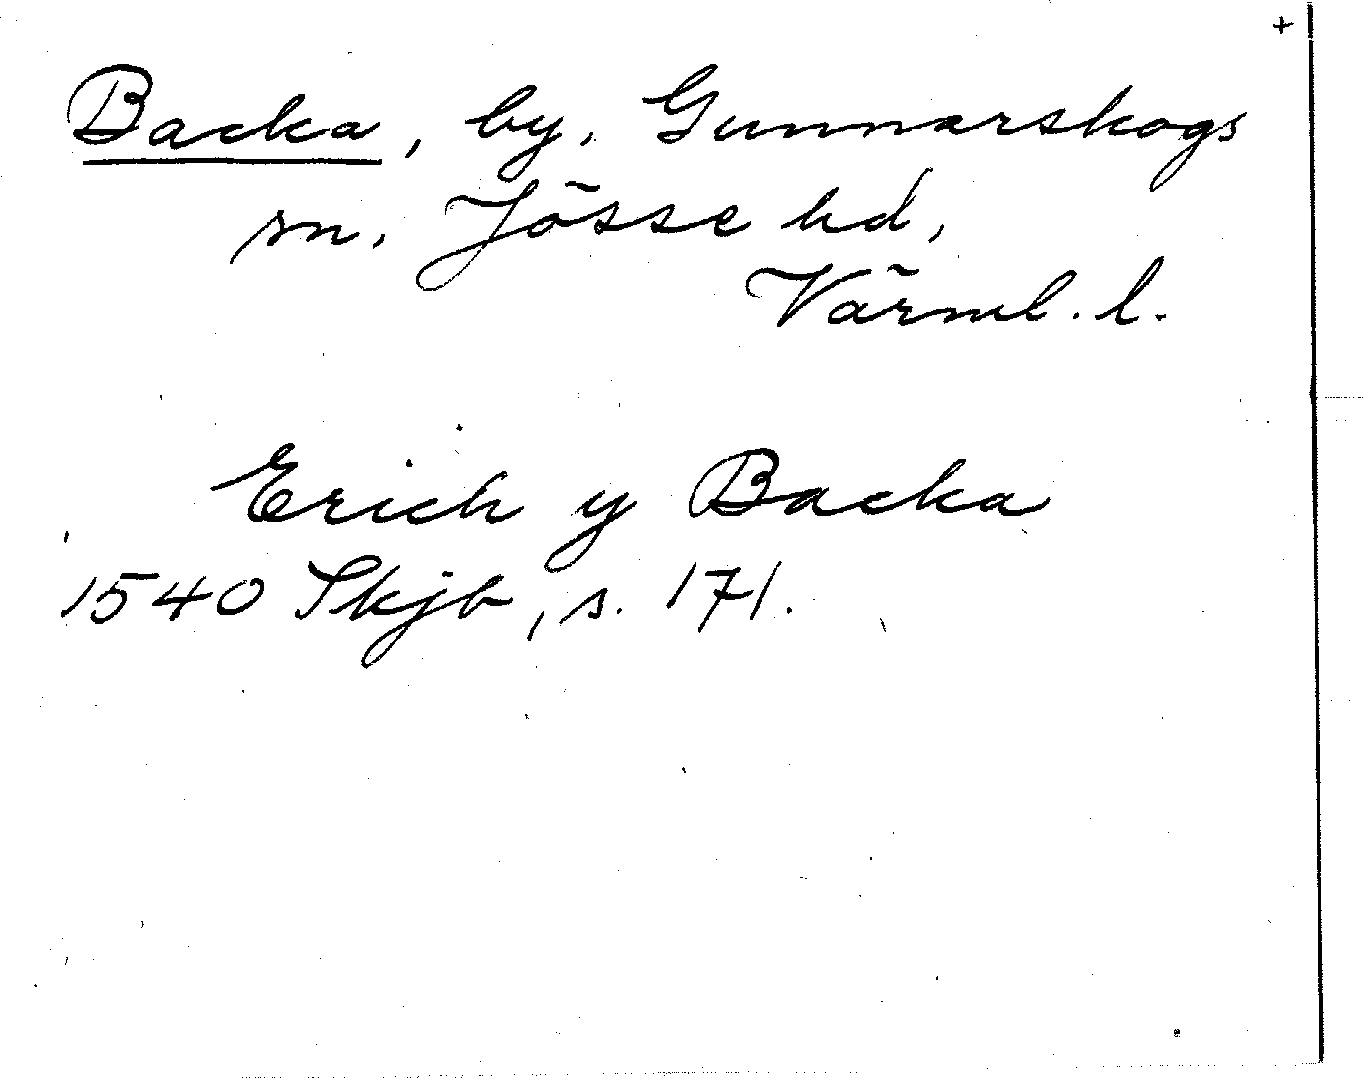 +
Backa, by, Gunnarskogs
sn, Jösse hd,
Värml. l.
Erich y Backa
1540 Skjb, s. 171.